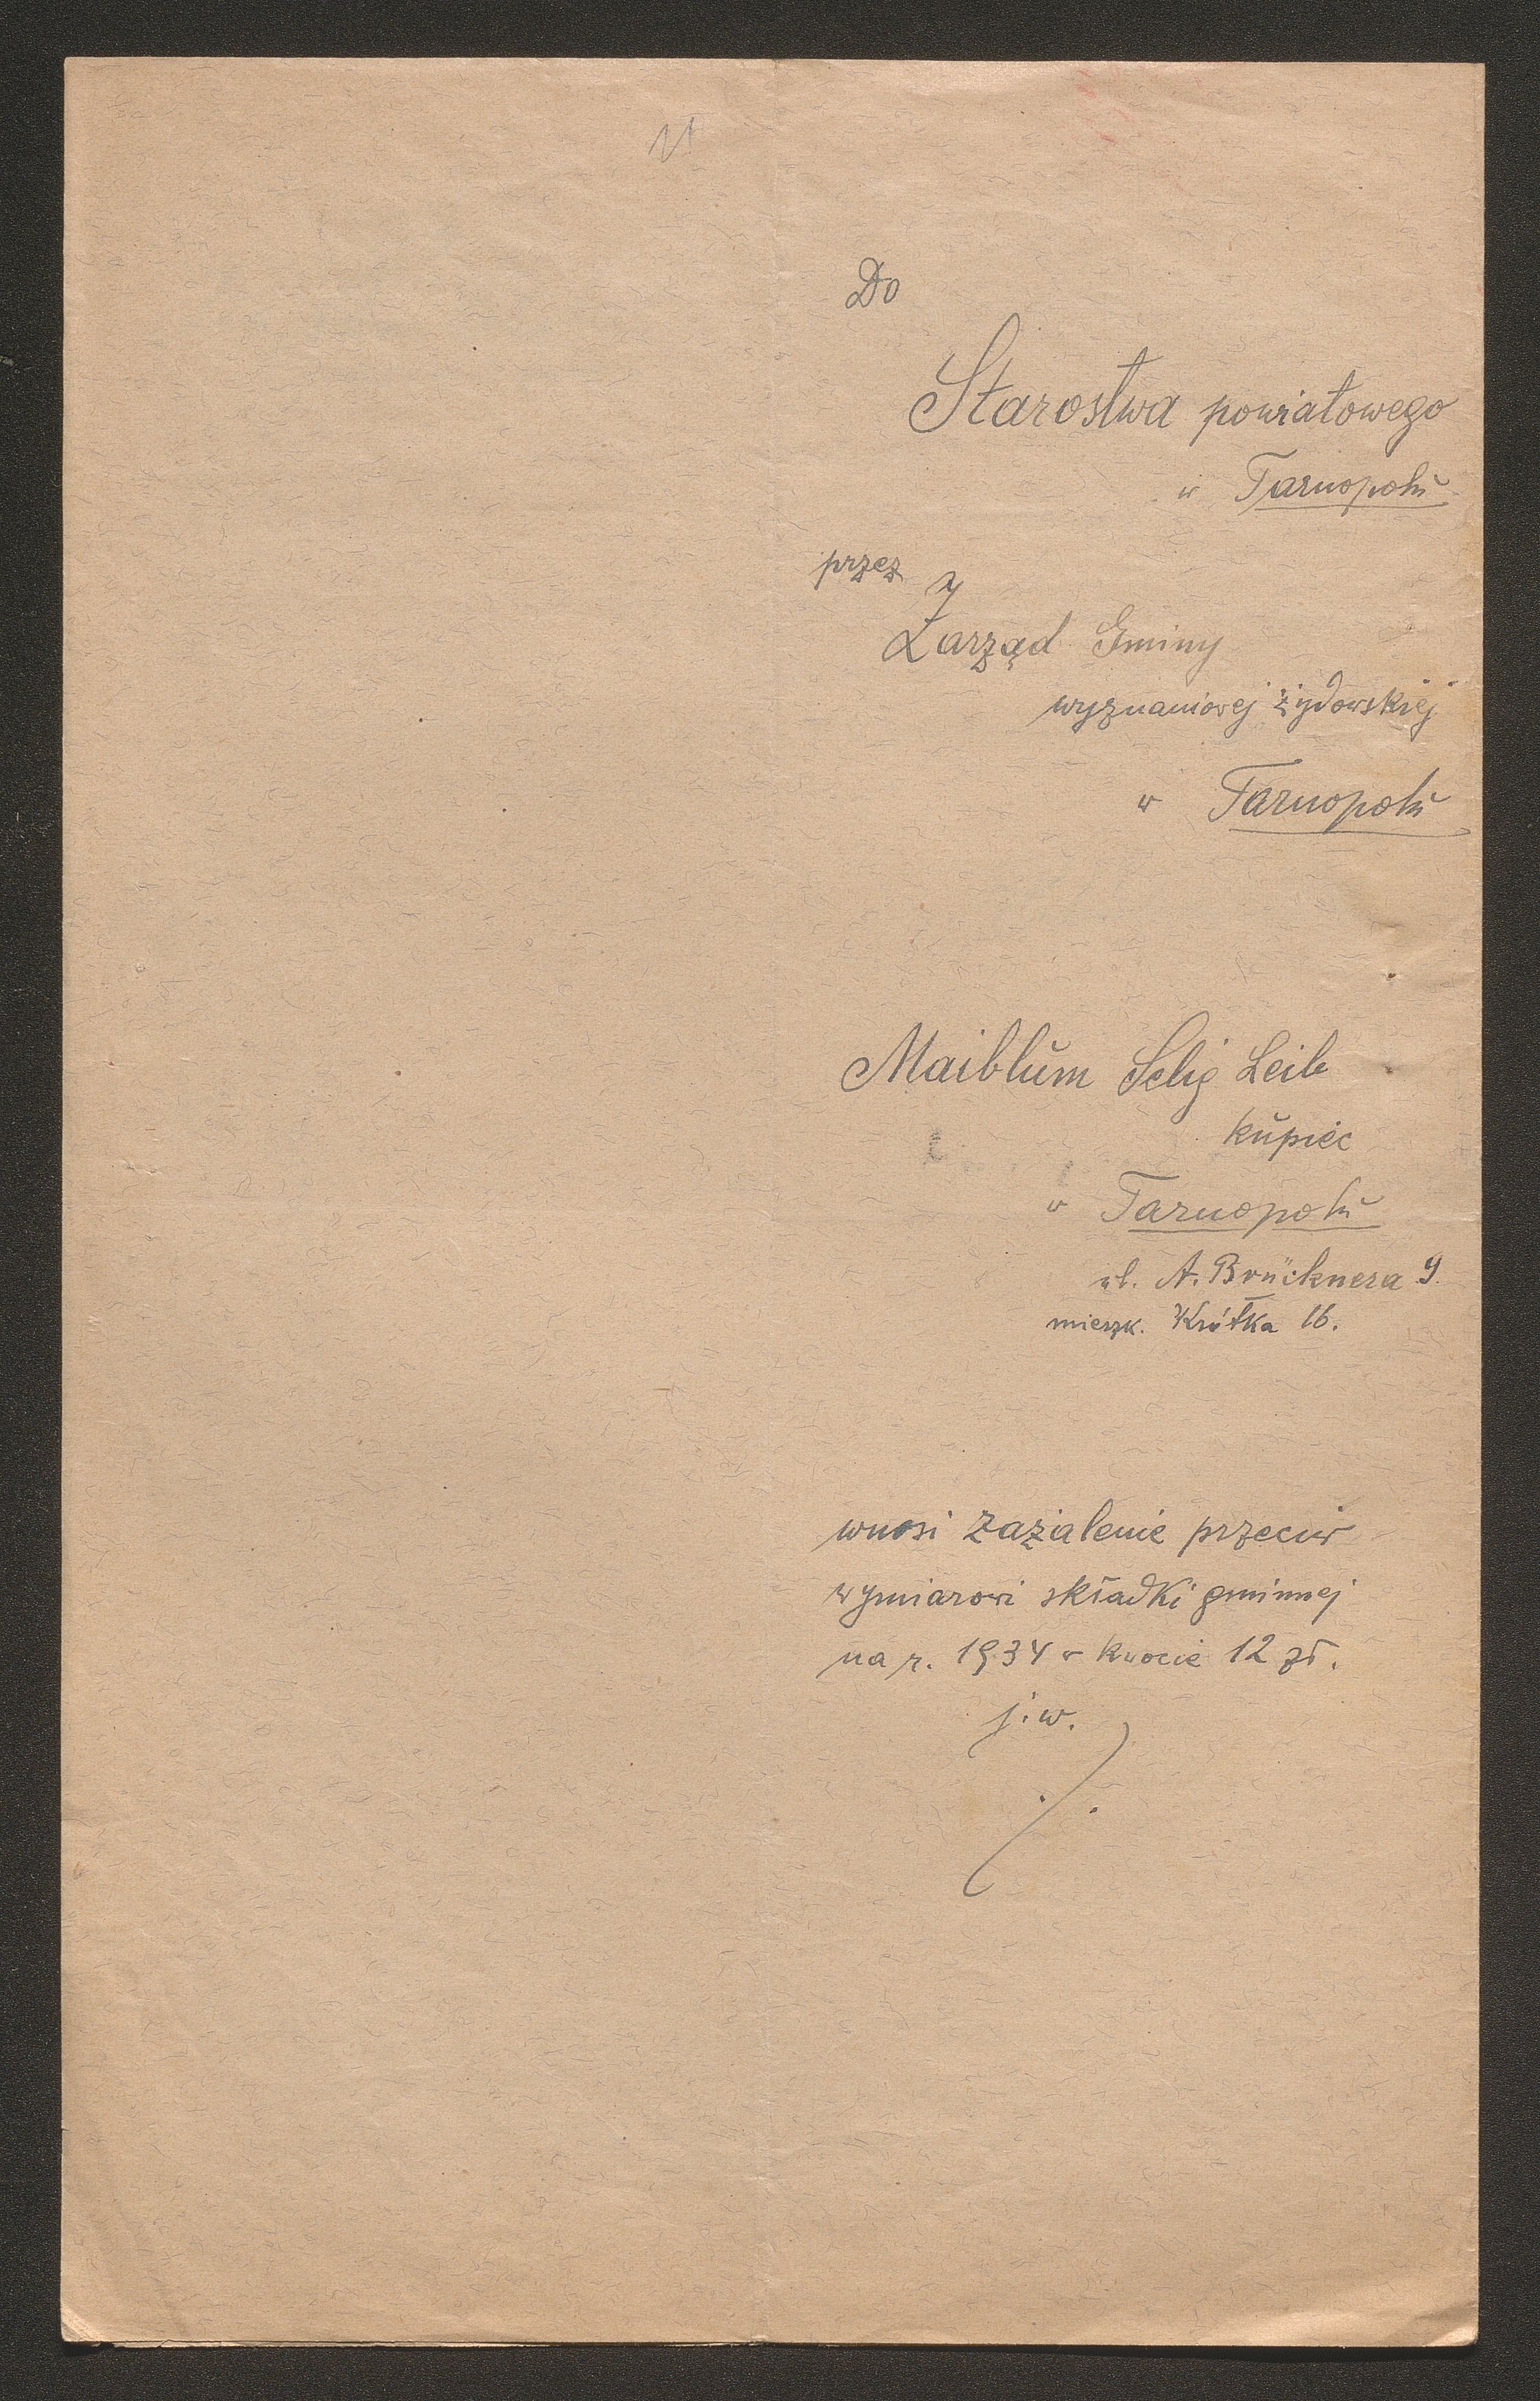 11
Do
Starostwa powiatowego
w Tarnopolu
przez
Zarząd Gminy
wyznaniowej żydowskiej
w Tarnopolu
Maiblum Selig Leib
kupiec
w Tarnopolu
ul. A. Brücknera 9.
mieszk. Krótka 16.
wnosi zażalenie przeciw
wymiarowi składki gminnej
na r. 1934 w kwocie 12 zł.
j. w.